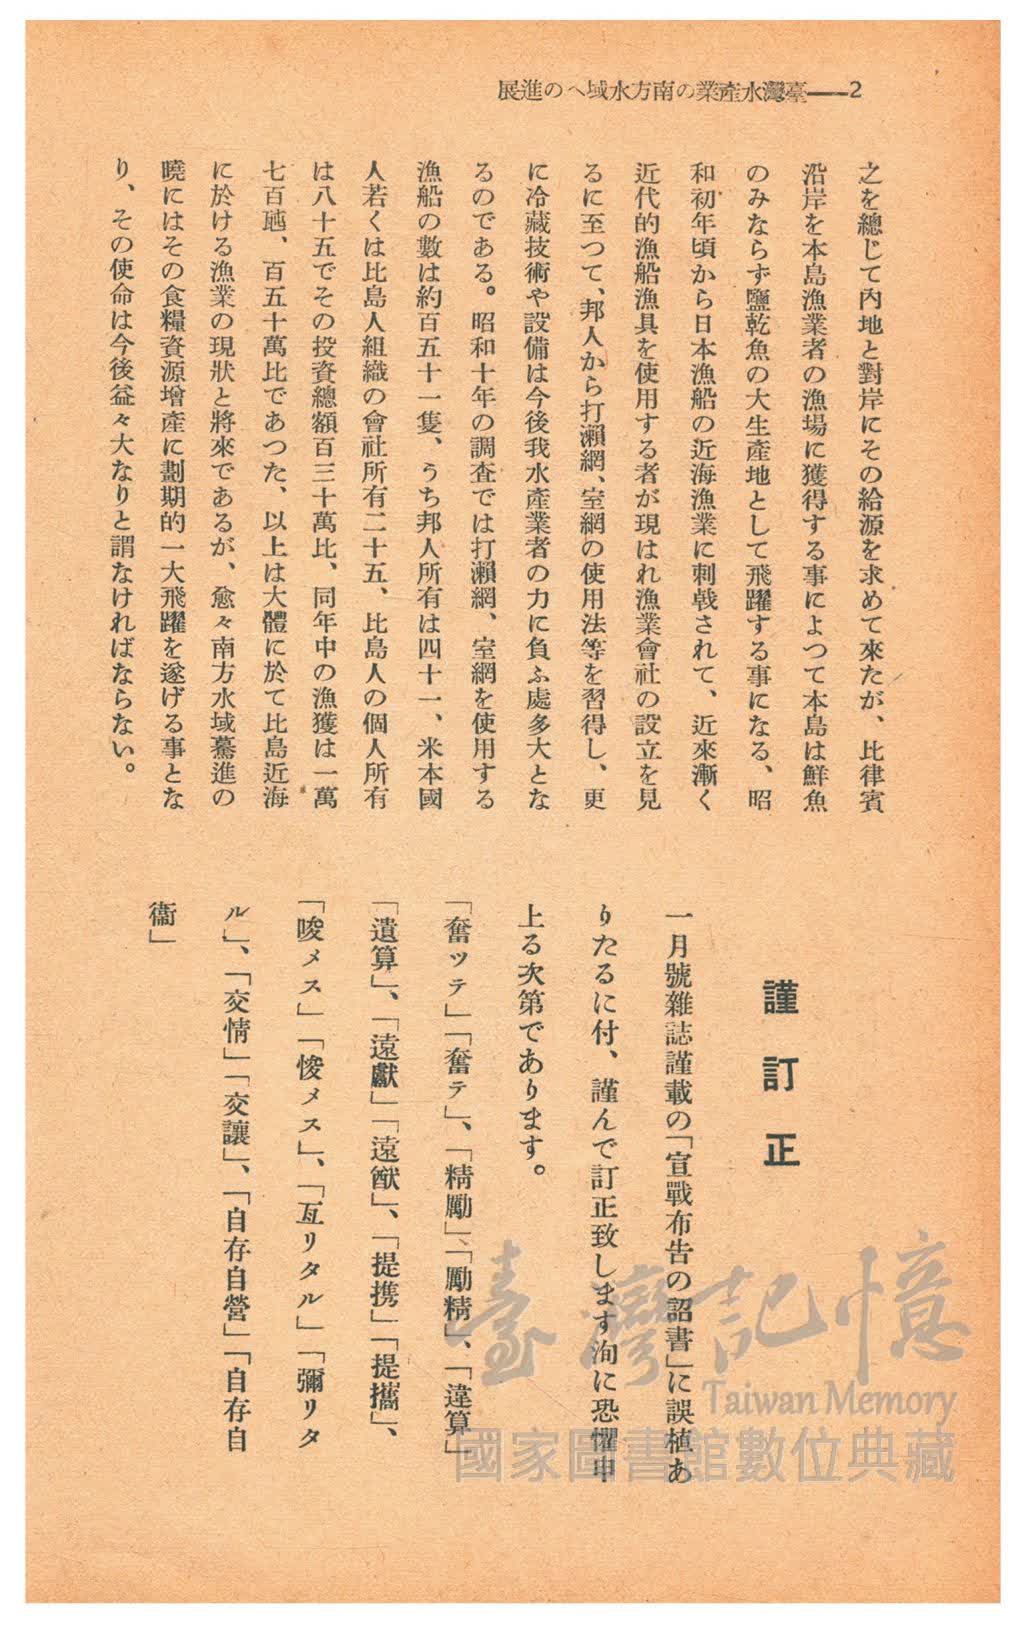 展進のへ域水方南の業產水灣臺——2
之を總じて內地と對岸にその給源を求めて來たが、比律賓
沿岸を本島漁業者の漁場に獲得する事によつて本島は鮮魚
のみならず鹽乾魚の大生產地として飛躍する事になる、昭
和初年頃から日本漁船の近海漁業に刺戟されて、近來漸く
近代的漁船漁具を使用する者が現はれ漁業會社の設立を見
るに至つて、邦人から打瀨網、室網の使用法等を習得し、更
に冷藏技術や設備は今後我水產業者の力に負ふ處多大とな
るのである。昭和十年の調査では打瀨網、室網を使用する
漁船の數は約百五十一隻、うち邦人所有は四十一、米本國
人若くは比島人組織の會社所有二十五、比島人の個人所有
は八十五でその投資總額百三十萬比、同年中の漁獲は一萬
七百瓲、百五十萬比であつた、以上は大體に於て比島近海
に於ける漁業の現狀と將來であるが、愈々南方水域驀進の
曉にはその食糧資源增產に劃期的一大飛躍を遂げる事とな
り、その使命は今後益々大なりと謂なければならない。
謹訂正
一月號雜誌謹載の「宣戰布告の詔書」に誤植あ
りたるに付、謹んで訂正致します洵に恐懼申
上る次第であります。
「奮ツテ」「奮テ」、「精勵」、「勵精」、「違算」
「遺算」、「遠獻」「遠猷」、「提携」「提攜」、
「唆メス」「悛メス」、「亙リタル」「彌リタ
ル」、「交情」「交讓」、「自存自營」「自存自
衞」
臺灣記憶
Taiwan Memory
國家圖書館數位典藏